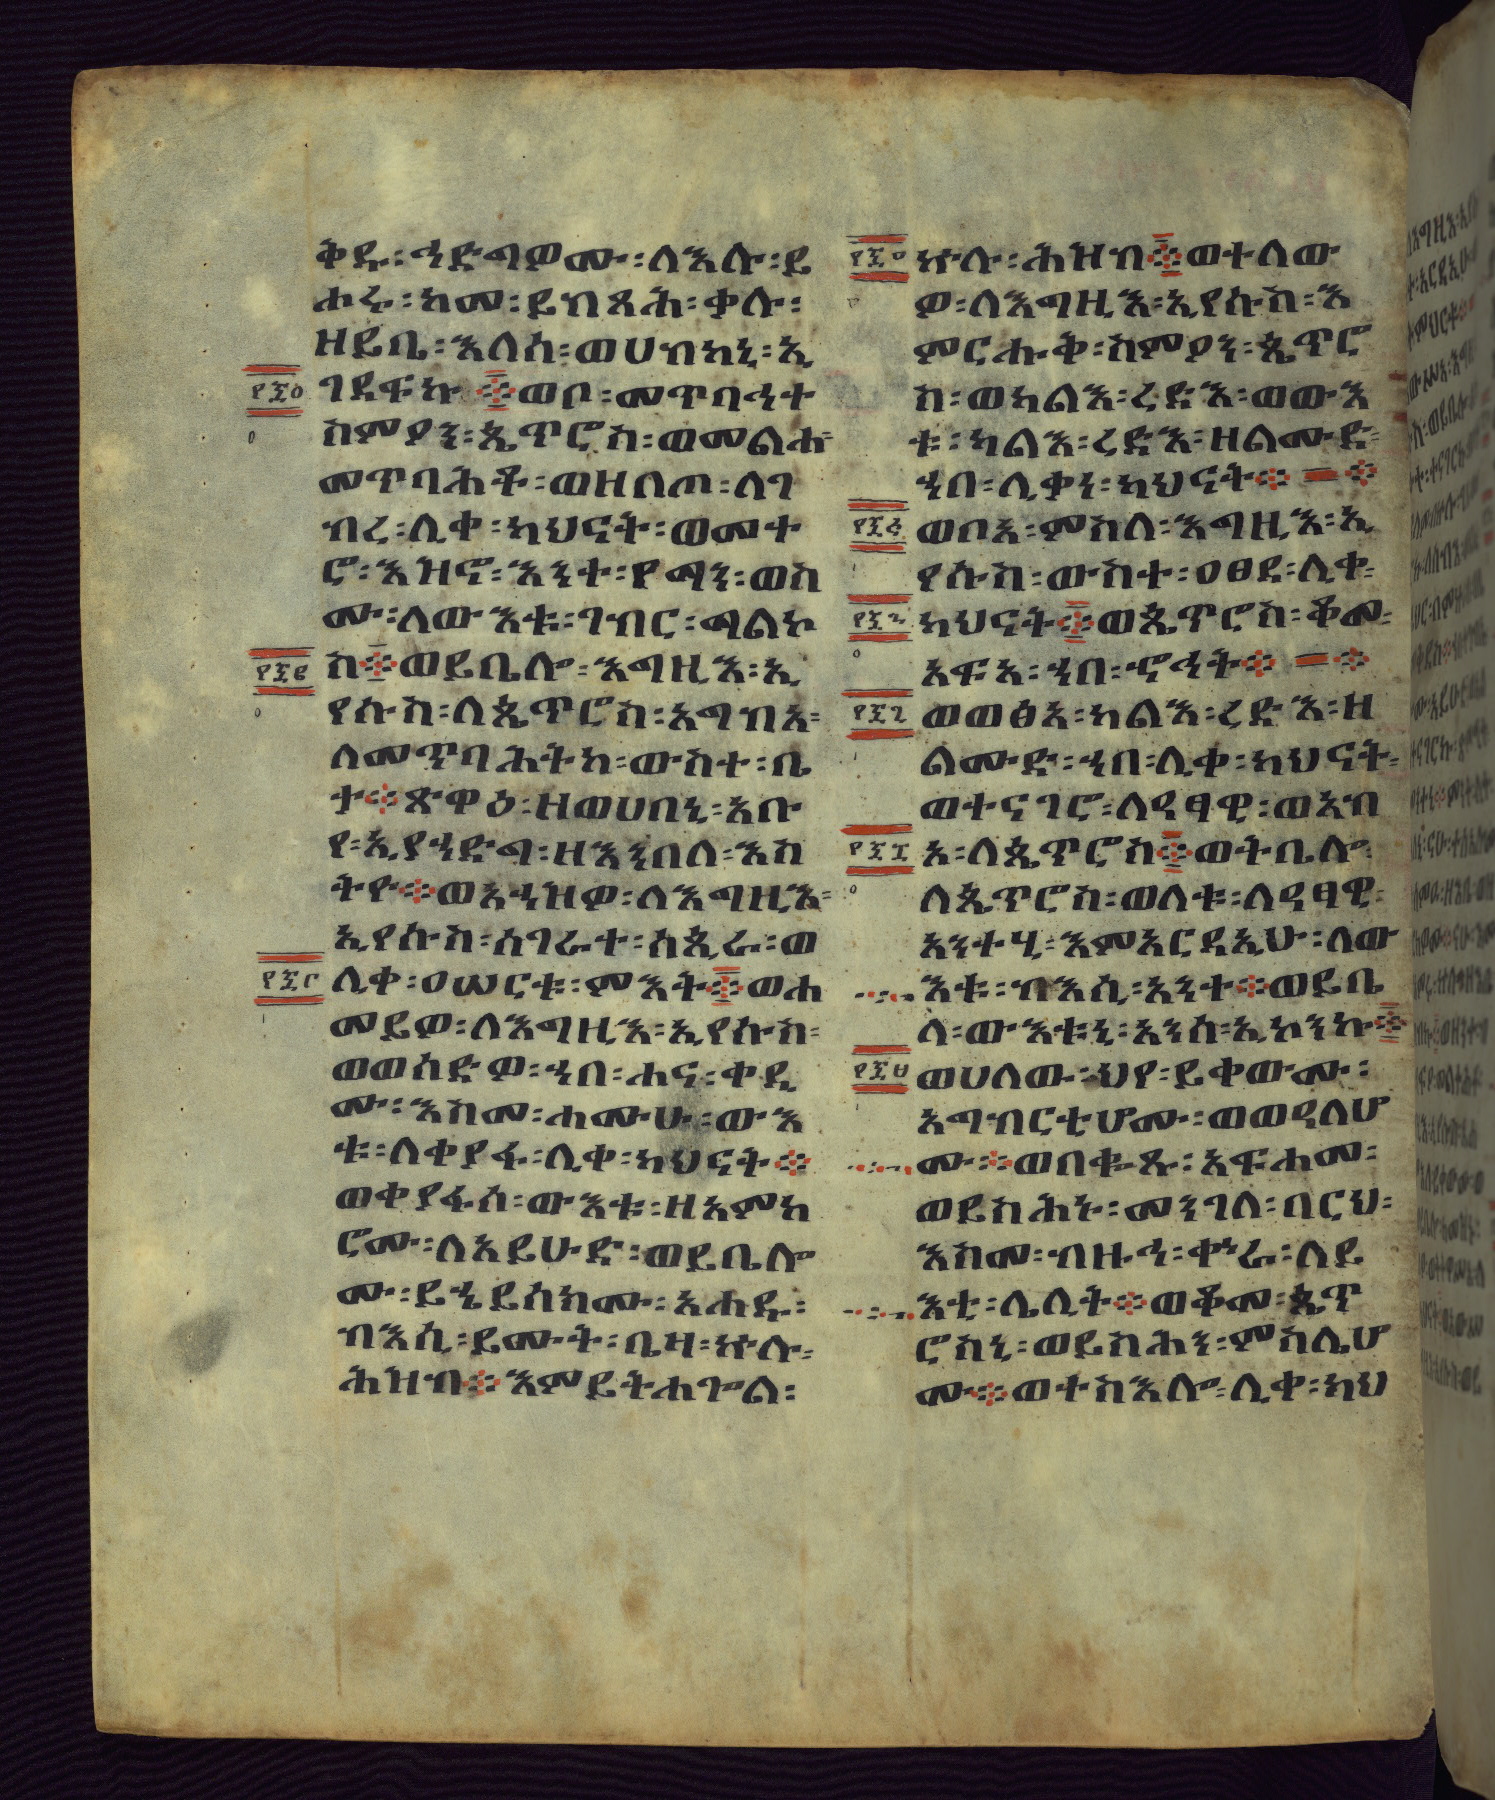 ቅዱ፡ ኅድግዎሙ፡ ለእሉ፡ ይ
ሖሩ፡ ከመ፡ ይብጻሕ፡ ቃሉ፡
ዘይቤ፡ እለሰ፡ ወሀብከኒ፡ ኢ
ገደፍኩ ፨ ወቦ፡ መጥባኅተ
ስምዖን፡ ጴጥሮስ፡ ወመልሐ፡
መጥባሕቶ፡ ወዘበጦ፡ ለገ
ብረ፡ ሊቀ፡ ካህናት፡ ወመተ
ሮ፡ እዝኖ፡ እንተ፡ የማን፡ ወስ
ሙ፡ ለውእቱ፡ ገብር፡ ማልኮ
ስ ፨ ወይቤሎ፡ እግዚእ፡ ኢ
የሱስ፡ ለጴጥሮስ፡ አግብአ፡
ለመጥባሕትከ፡ ውስተ፡ ቤ
ታ ፨ ጽዋዕ፡ ዘወሀበኒ፡ አቡ
የ፡ ኢያኅድግ፡ ዘእንበለ፡ እስ
ትዮ ፨ ወአኀዝዎ፡ ለእግዚእ፡
ኢየሱስ፡ ሰገራተ፡ ሰጲራ፡ ወ
ሊቀ፡ ዐሠርቱ፡ ምእት ፨ ወሐ
መይዎ፡ ለእግዚእ፡ ኢየሱስ፡
ወወሰድዎ፡ ኀበ፡ ሐና፡ ቀዲ
ሙ፡ እስመ፡ ሐሙሁ፡ ውእ
ቱ፡ ለቀያፋ፡ ሊቀ፡ ካህናት ፨
ወቀያፋሰ፡ ውእቱ፡ ዘአምከ
ሮሙ፡ ለአይሁድ፡ ወይቤሎ
ሙ፡ ይኄይሰክሙ፡ አሐዱ፡
ብእሲ፡ ይሙት፡ ቤዛ፡ ኵሉ፡
ሕዝብ ፨ እምይትሐጐል፡
፻፶፬
፻፶፭
፻፶፮
ኵሉ፡ ሕዝብ ፨ ወተለው
ዎ፡ ለእግዚእ፡ ኢየሱስ፡ እ
ምርሑቅ፡ ስምዖን፡ ጴጥሮ
ስ፡ ወካልእ፡ ረድእ፡ ወውእ
ቱ፡ ካልእ፡ ረድእ፡ ዘልሙድ፡
ኀበ፡ ሊቃነ፡ ካህናት ፨
ወቦአ፡ ምስለ፡ እግዚእ፡ ኢ
የሱስ፡ ውስተ፡ ዐፀደ፡ ሊቀ፡
ካህናት ፨ ወጴጥሮስ፡ ቆመ፡
አፍአ፡ ኀበ፡ ኆኅት ፨
ወወፅአ፡ ካልእ፡ ረድእ፡ ዘ
ልሙድ፡ ኀበ፡ ሊቀ፡ ካህናት፡
ወተናገሮ፡ ለዓፃዊ፡ ወአብ
አ፡ ለጴጥሮስ ፨ ወትቤሎ፡
ለጴጥሮስ፡ ወለቱ፡ ለዓፃዊ፡
አንተሂ፡ እምአርዳኢሁ፡ ለው
እቱ፡ ብእሲ፡ አንተ ፨ ወይቤ
ላ፡ ውእቱኒ፡ አንሰ፡ ኢኮንኩ ፨
ወሀለው፡ ህየ፡ ይቀውሙ፡
አግብርቲሆሙ፡ ወወዓለሆ
ሙ ፨ ወበቈጹ፡ አፍሐመ፡
ወይስሕኑ፡ መንገለ፡ በርህ፡
እስመ፡ ብዙኅ፡ ቍራ፡ ለይ
እቲ፡ ሌሊት ፨ ወቆመ፡ ጴጥ
ሮስኒ፡ ወይስሕን፡ ምስሌሆ
ሙ ፨ ወተስእሎ፡ ሊቀ፡ ካህ